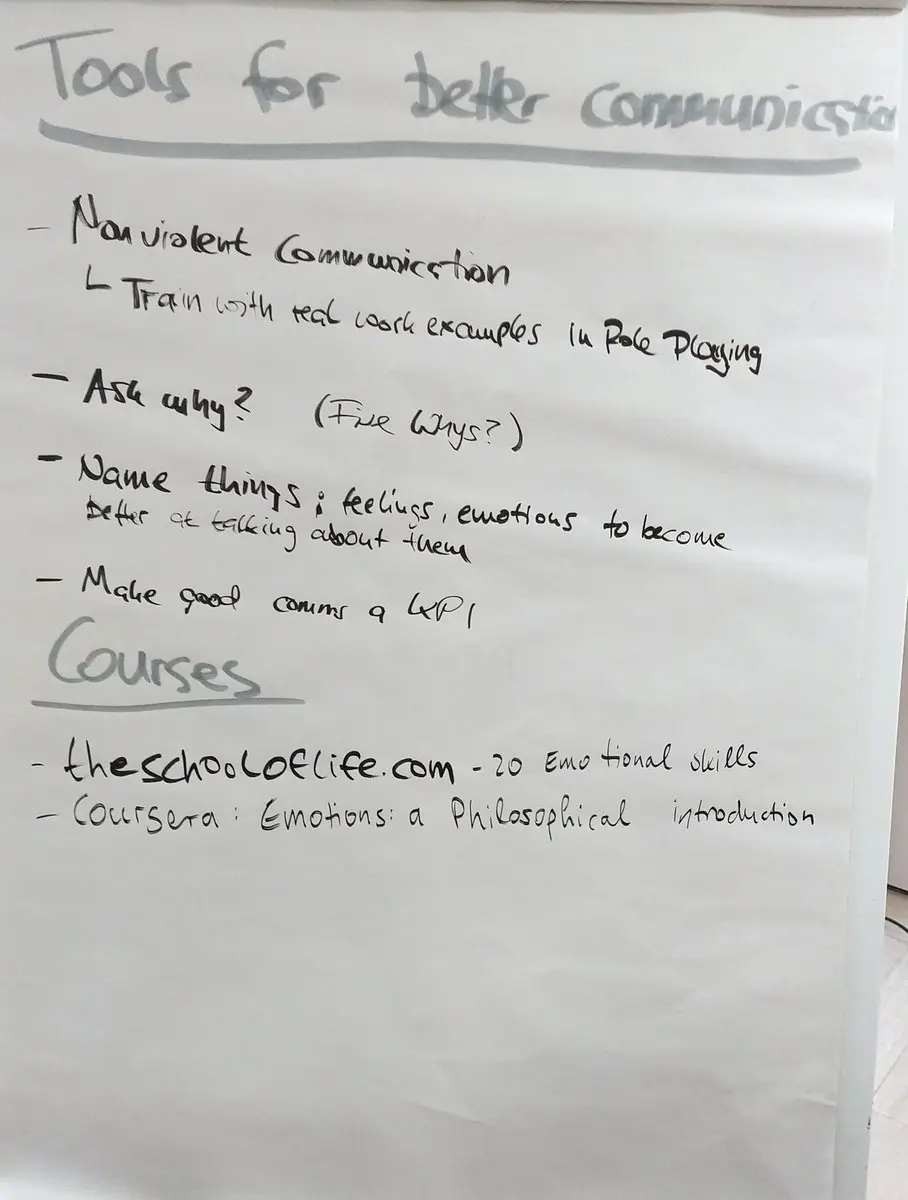 Tools for better Communication
- Nonviolent Communication
└ Train with real work examples in Role Playing
- Ask why? (Five Whys?)
- Name things; feelings, emotions to become
better at talking about them
- Make good comms a KPI
Courses
- theschooloflife.com - 20 Emotional skills
- Coursera: Emotions: a Philosophical introduction